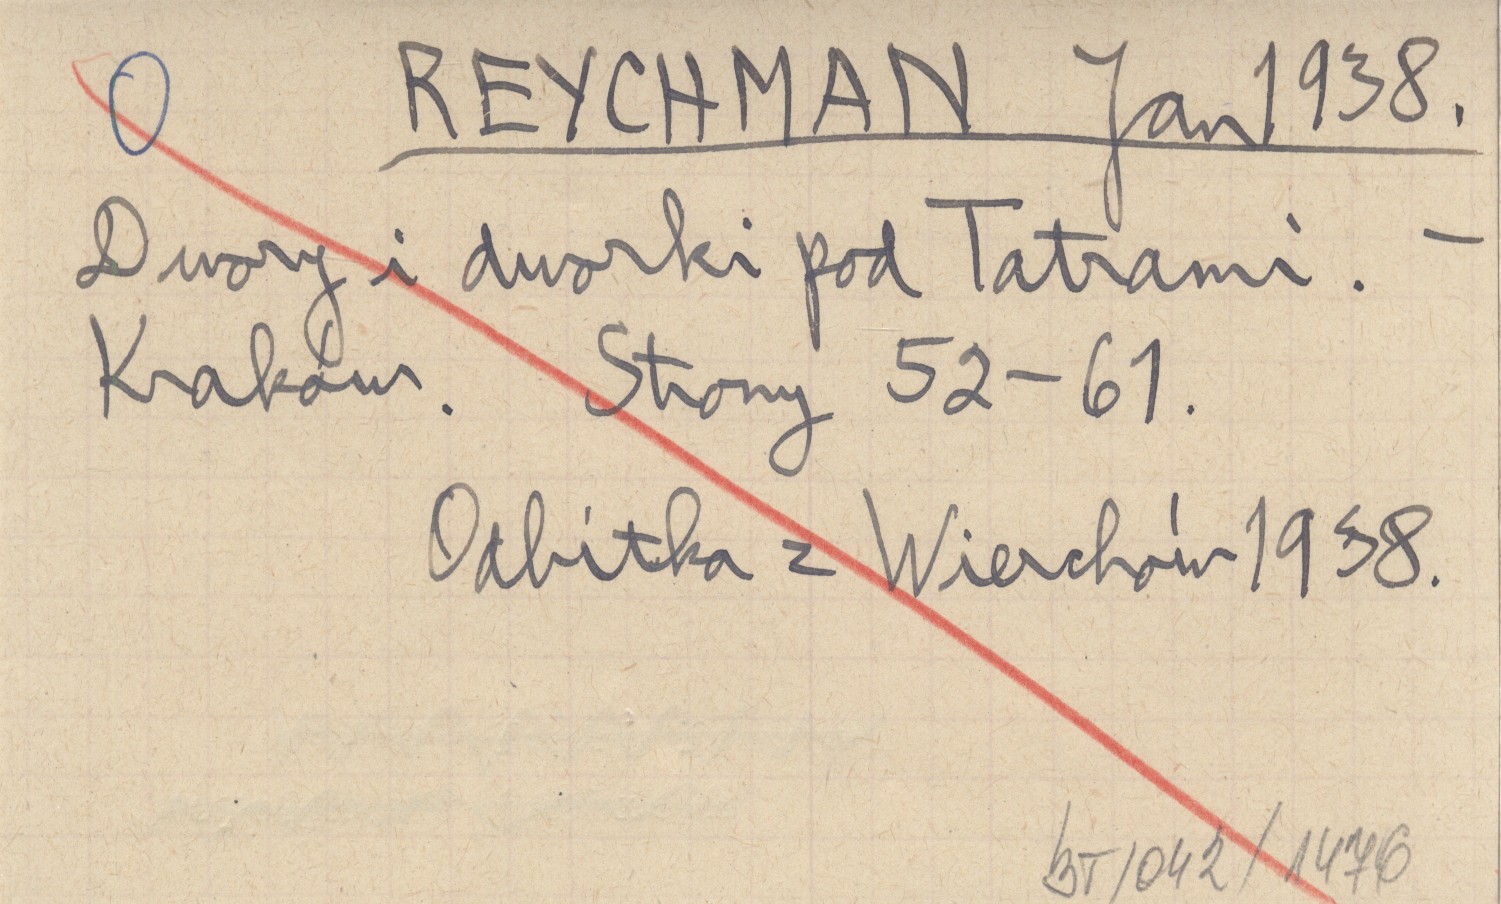 O REYCHMAN Jan 1938.
Dwory i dworki pod Tatrami. –
Kraków. Strony 52–61.
Odbitka z Wierchów 1938.
BT/042/1476